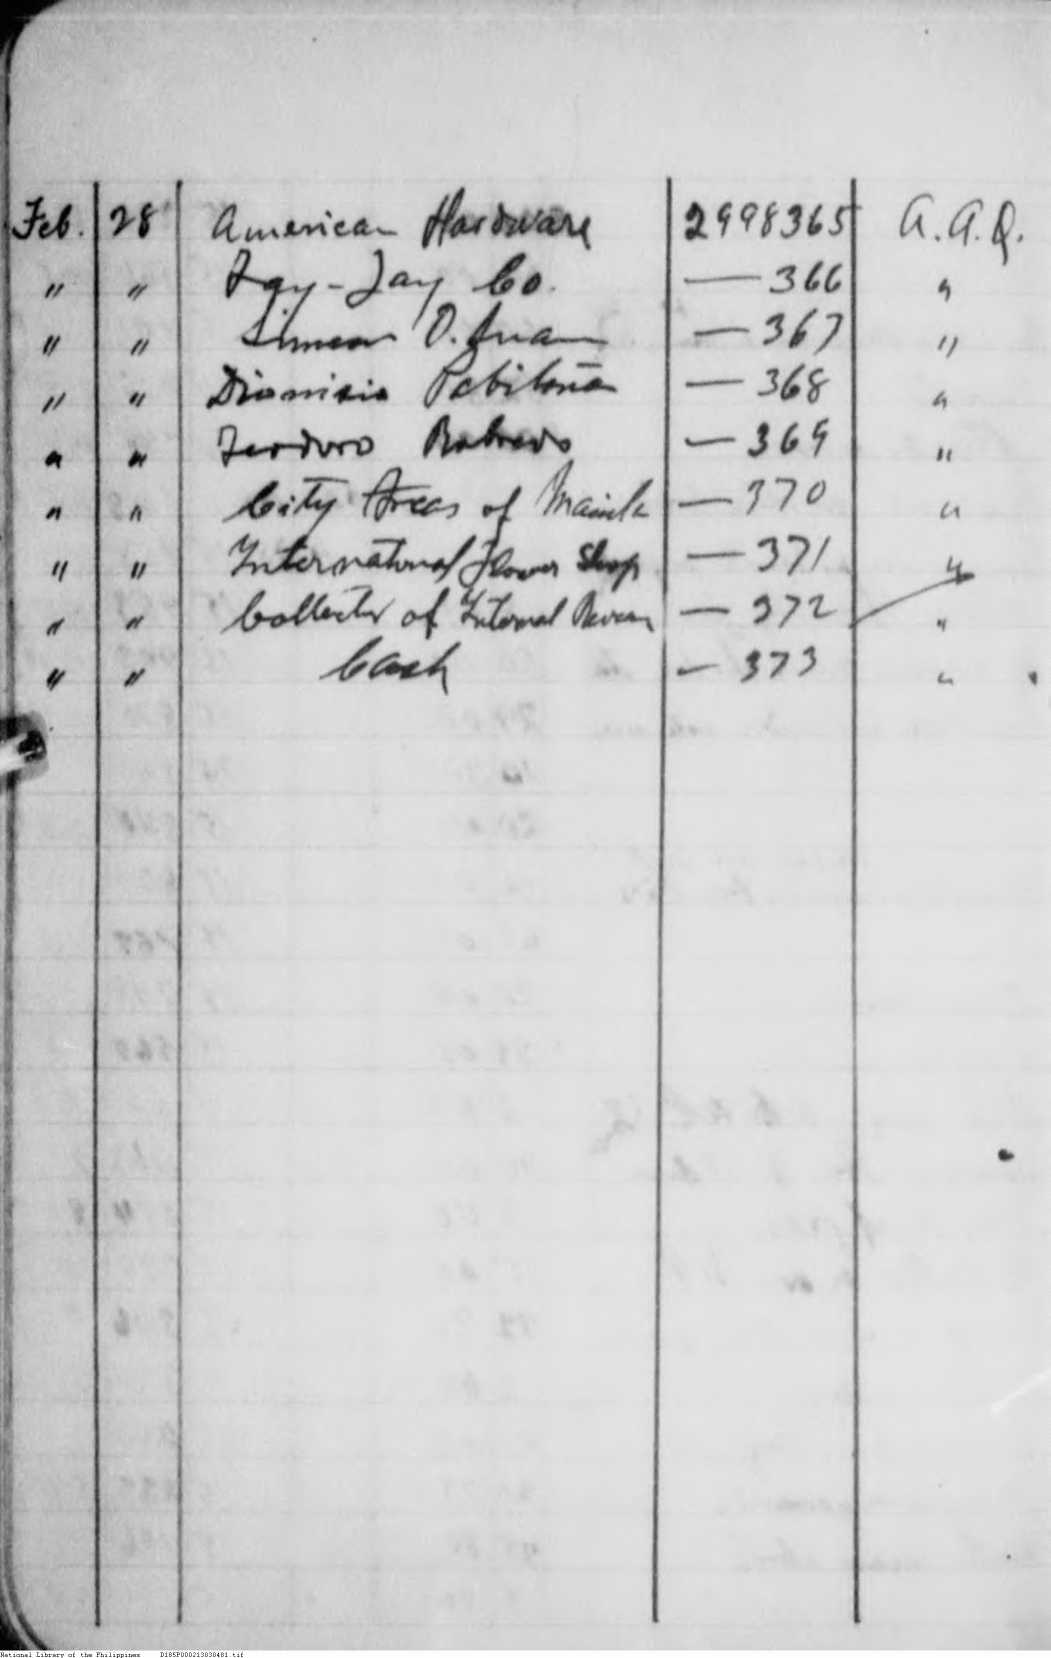 Feb. 28 American Hardware 2998365 A.A.Q.
" " Fay-Jay Co. — 366 "
" " Simeon O. Juan — 367 "
" " Dionisio Pabiloña — 368 "
" " Teodoro Robredo — 369 "
" " City Treas of Manila — 370 "
" " International Flower Shop — 371 "
" " Collector of Internal Reven — 372 "
" " Cash — 373 "
National Library of the Philippines D185P000213030481.tif